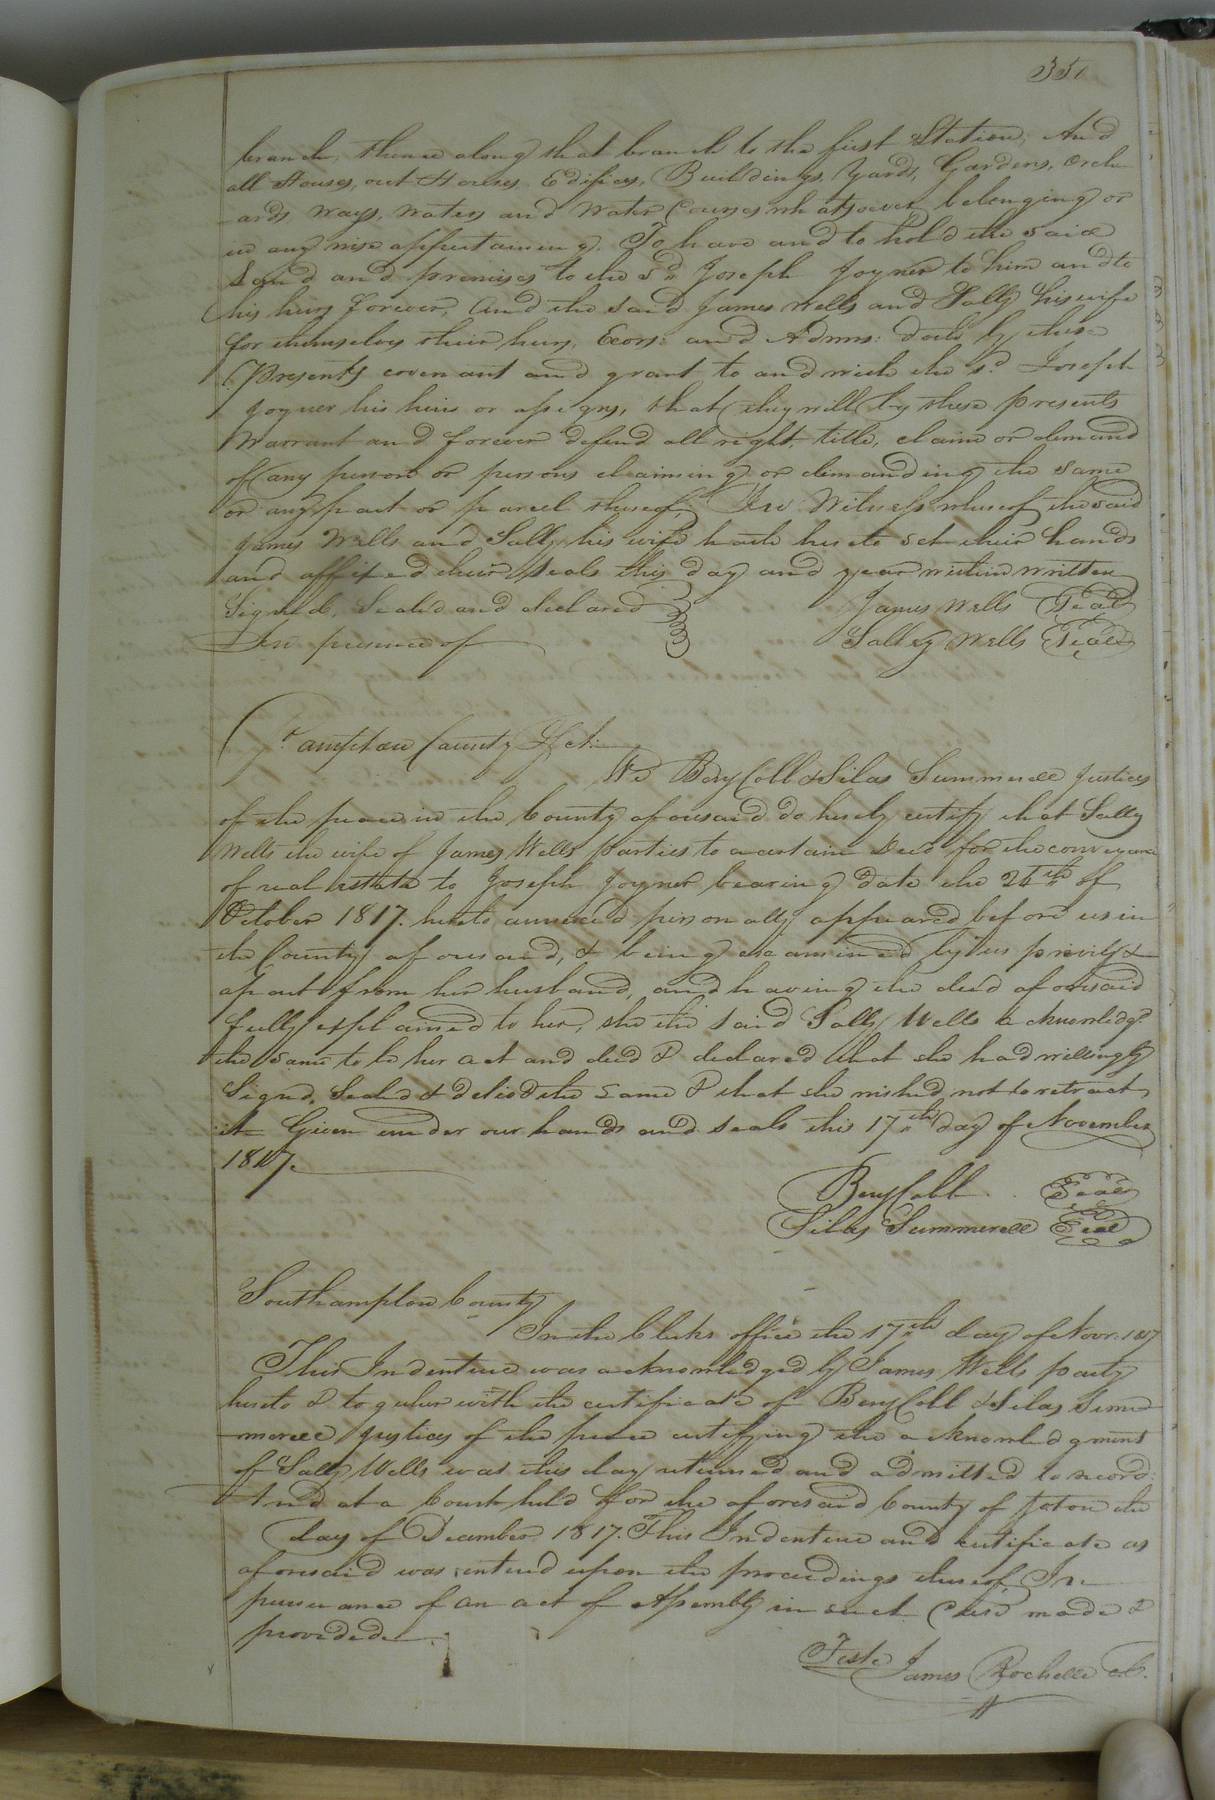 351
branch, thence along that branch to the first Station, And
all Houses, out Houses, Edifices, Buildings, Yards, Gardens, Orch
ards ways, waters and Water Courses whatsoever belonging or
in any wise appertaining. To have and to hold the said
Land and premises to the Sd. Joseph Joyner to him and to
his heirs forever, And the said James Wells and Sally his wife
for themselves their heirs, Exors: and Admrs: doth by these
Presents covenant and grant to and with the sd. Joseph
Joyner his heirs or assigns, that they will by these presents
Warrant and forever defend all right, title, claim or demand
of any person or persons claiming or demanding the same
or any part or parcel thereof, In Witness whereof the said
James Wells and Sally his wife hath hereto set their hands
and affixed their seals this day and year within written
Signed, Sealed and declared James Wells Seal
In presence of Salley Wells Seal
So. ampton County Sct.
We Benj Cobb & Silas Summerell Justices
of the peace in the County aforesaid do hereby certify that Sally
Wells the wife of James Wells parties to a certain Deed for the conveyance
of real estate to Joseph Joyner bearing date the 25th of
October 1817. hereto annexed personally appeared before us in
the County aforesaid, & being examined by us privily &
apart from her husband, and having the deed aforesaid
fully explained to her, she the said Sally Wells acknowledgd
the same to be her act and deed & declared that she had willingly
Signd, Seald & delivd the same & that she wished not to retract
it Given under our hands and seals this 17th day of November
1817.
Benj Cobb Seal
Silas Summerell Seal
Southampton County
In the Clerks office the 17th day of Novr. 1817
This Indenture was acknowledged by James Wells party
hereto & together with the certificate of Benj Cobb & Silas Sum
merell Justices of the peace certifying the acknowledgment
of Sally Wells was this day returned and admitted to record.
And at a Court held for the aforesaid County of Soton the
day of December 1817. This Indenture and certificate as
aforesaid was entered upon the proceedings thereof, In
pursuance of an act of Assembly in such case made &
provided.
Teste James Rochelle C.